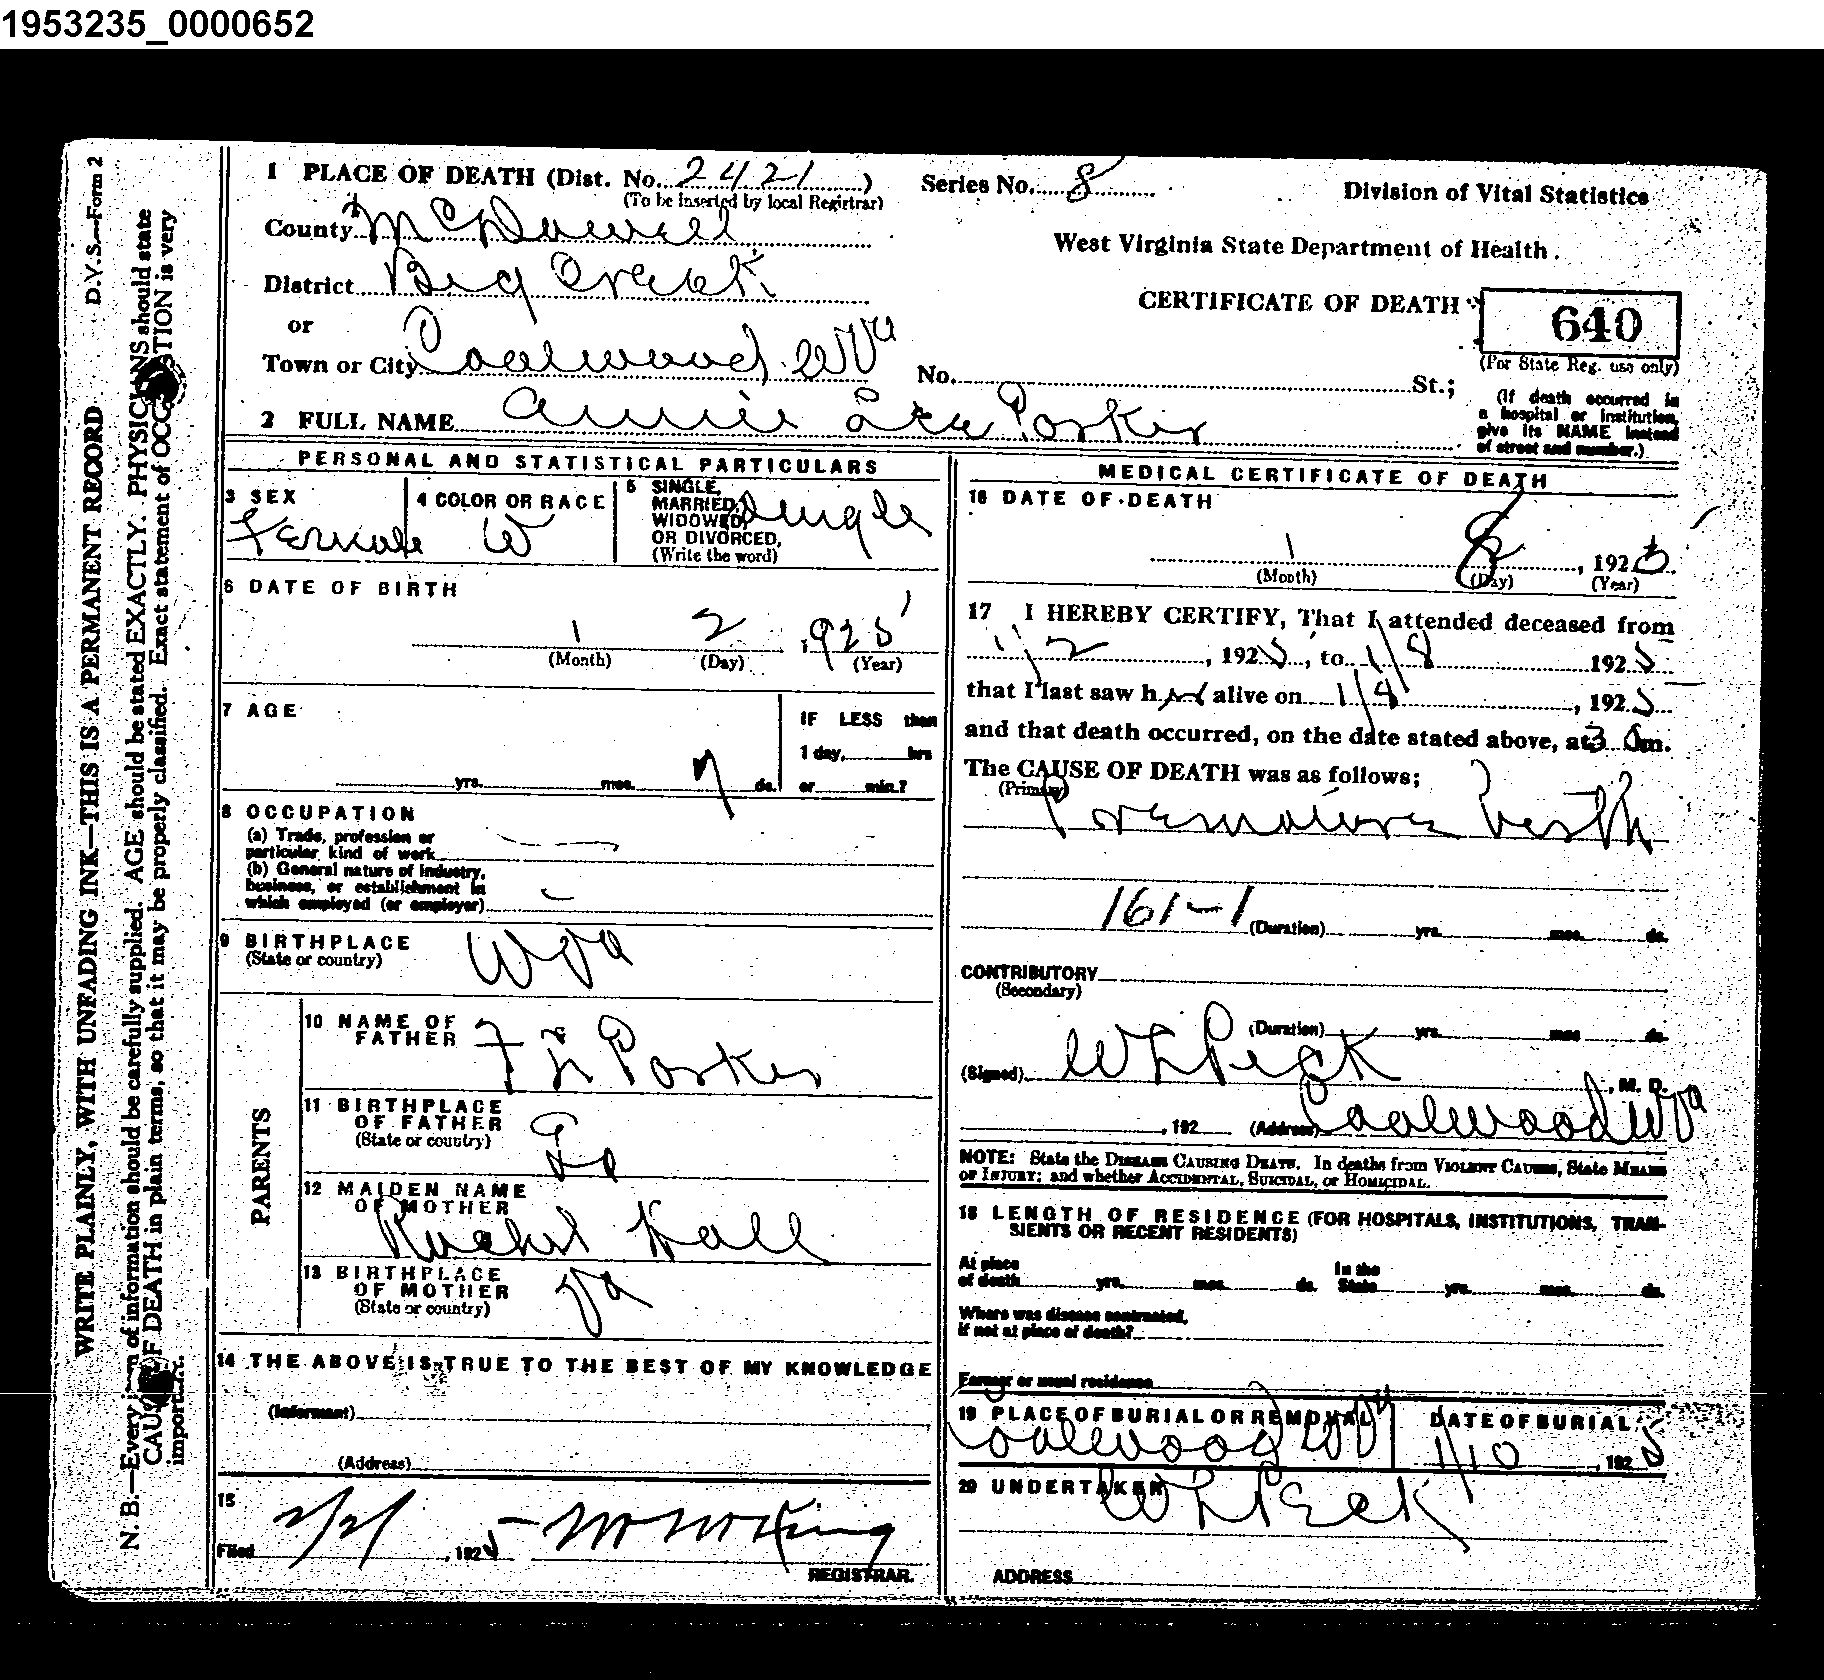 1953235_0000652
D.V.S.—Form 2
WRITE PLAINLY, WITH UNFADING INK—THIS IS A PERMANENT RECORD
N. B.—Every item of information should be carefully supplied. AGE should be stated EXACTLY. PHYSICIANS should state
CAUSE OF DEATH in plain terms, so that it may be properly classified. Exact statement of OCCUPATION is very
important.
1 PLACE OF DEATH (Dist. No. 2421 )
(To be inserted by local Registrar)
Series No. 8
Division of Vital Statistics
County McDowell
West Virginia State Department of Health.
District Big Creek
CERTIFICATE OF DEATH
640
(For State Reg. use only)
or
Town or City Coalwood WVa
No. St.;
(If death occurred in
a hospital or institution,
give its NAME instead
of street and number.)
2 FULL NAME Annie Parker
PERSONAL AND STATISTICAL PARTICULARS
3 SEX
Female
4 COLOR OR RACE
W
5 SINGLE,
MARRIED,
WIDOWED,
OR DIVORCED,
(Write the word)
Single
6 DATE OF BIRTH
1 2 1925
(Month) (Day) (Year)
7 AGE
yrs. mos. 7 ds.
IF LESS than
1 day, hrs
or min.?
8 OCCUPATION
(a) Trade, profession or
particular kind of work
(b) General nature of industry,
business, or establishment in
which employed (or employer)
9 BIRTHPLACE
(State or country)
WVa
PARENTS
10 NAME OF
FATHER
Parker
11 BIRTHPLACE
OF FATHER
(State or country)
12 MAIDEN NAME
OF MOTHER
Hall
13 BIRTHPLACE
OF MOTHER
(State or country)
Va
14 THE ABOVE IS TRUE TO THE BEST OF MY KNOWLEDGE
(Informant)
(Address)
15
Filed , 192
REGISTRAR.
MEDICAL CERTIFICATE OF DEATH
16 DATE OF DEATH
1 8 , 1925
(Month) (Day) (Year)
17 I HEREBY CERTIFY, That I attended deceased from
1/2 , 1925, to 1/8 1925
that I last saw her alive on 1/8 , 1925
and that death occurred, on the date stated above, at 3 am.
The CAUSE OF DEATH was as follows;
(Primary)
Premature birth
161-1
(Duration) yrs. mos. ds.
CONTRIBUTORY
(Secondary)
(Duration) yrs. mos. ds.
(Signed) W L Peck , M. D.
, 192 (Address) Coalwood WVa
NOTE: State the DISEASE CAUSING DEATH. In deaths from VIOLENT CAUSES, State MEANS
OF INJURY; and whether ACCIDENTAL, SUICIDAL, or HOMICIDAL.
18 LENGTH OF RESIDENCE (FOR HOSPITALS, INSTITUTIONS, TRAN-
SIENTS OR RECENT RESIDENTS)
At place
of death yrs. mos. ds.
In the
State yrs. mos. ds.
Where was disease contracted,
if not at place of death?
Former or usual residence
19 PLACE OF BURIAL OR REMOVAL
Coalwood WVa
DATE OF BURIAL
1/10 , 1925
20 UNDERTAKER
W L Peck
ADDRESS